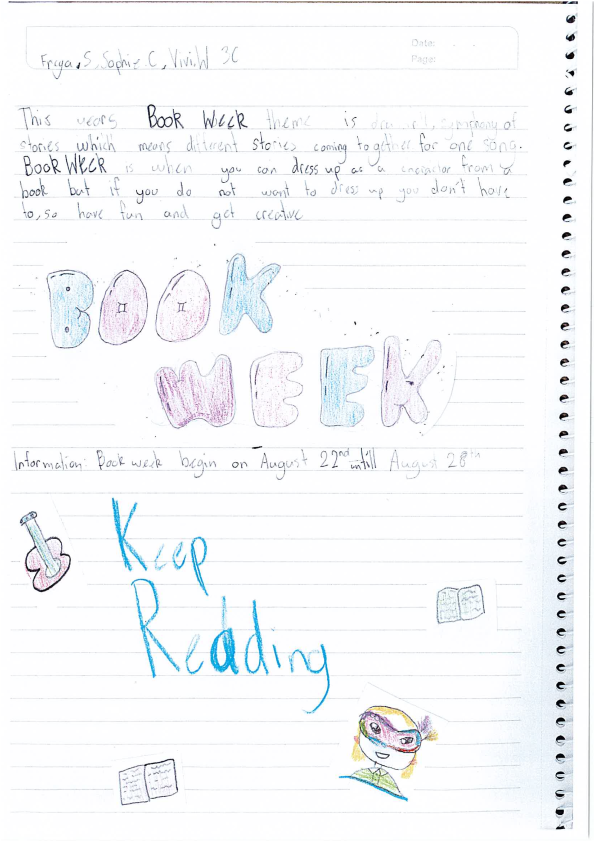 Date:
Page:
Freya.S, Sophie.C, Vivi.W 3C
This years Book Week theme is symphony of
stories which means different stories coming together for one song.
Book Week is when you can dress up as a character from a
book but if you do not want to dress up you don't have
to, so have fun and get creative
BOOK
WEEK
Information: Book week begin on August 22nd untill August 28th
Keep
Reading